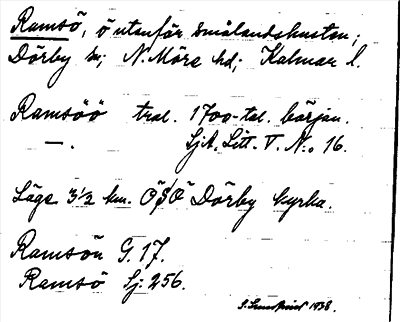 Ramsö, ö utanför Smålandskusten;
Dörby sn; N. Möre hd; Kalmar l.
Ramsöö trol. 1700-tal. början.
—. SjA, Litt. V. No. 16.
Läge 3½ km. ÖSÖ Dörby kyrka.
Ramsön G. 17.
Ramsö Sj: 256.
1938.